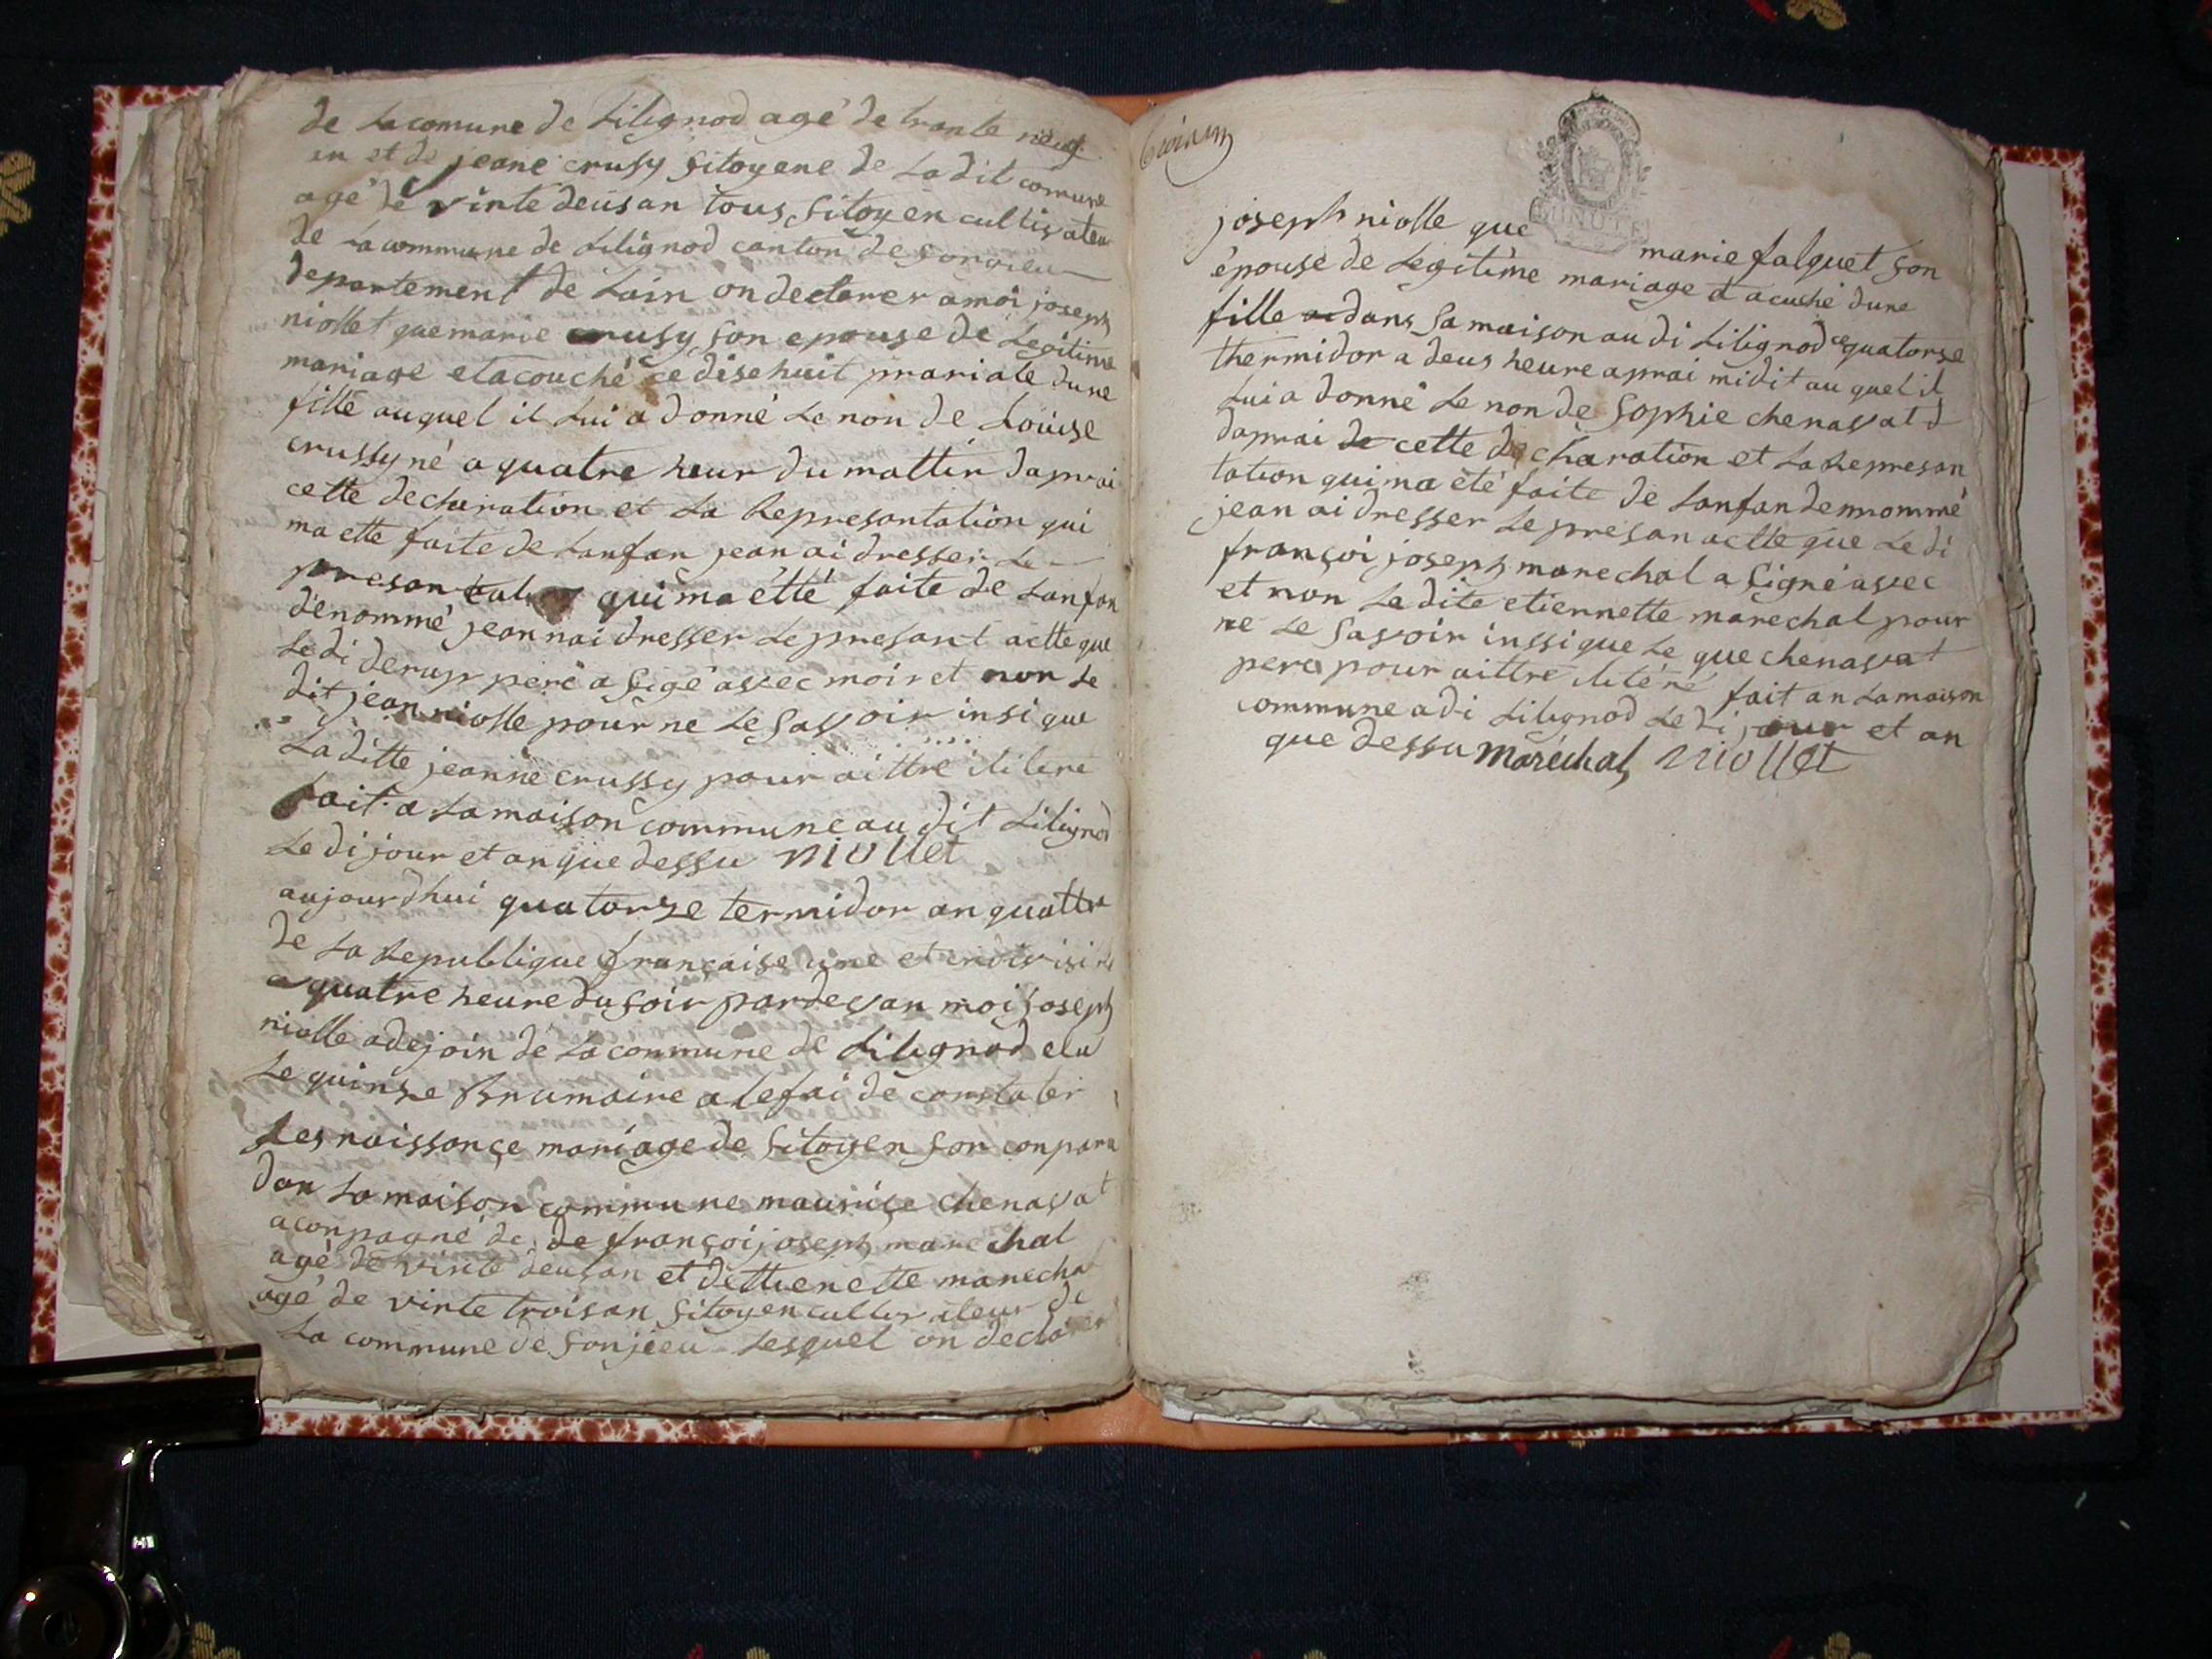 de Lacomune de Lilignod agé de trante neuf
an et de jeane crusy sitoyene de Ladit comune
agé de vinte deus an tous sitoyen cultivateur
de La commune de Lilignod canton de Songieu
departement de Lain on declarer a moi joseph
niollet que marie crusy son epouse de Legitime
mariage et acouché ce dise huit prariale dune
fille auquel il Lui a donné Le non de Louise
crussy né a quatre heur du mattin daprai
cette declaration et La Represantation qui
ma ette faite de Lanfan jean ai dresser Le
presan qui ma étté faite de Lanfan
dénommé jean nai dresser Le presant actte que
Le di derup peré a sigé avec moi et non Le
dit jean niolle pour ne Le Savoir insi que
La ditte jeanne crussy pour aittre ilitere
fait a La maison commune au dit Lilignod
Le di jour et an que dessu niollet
aujourdhui quatorze termidor an quattre
de La Republique française une et indivisible
a quatre heure du soir pardevan moi joseph
niolle adejoin de La commune de Lilignod elu
Le quinze Brumaire a lefai de constater
Les naissançe mariage de Sitoyen son conparu
dan La maison commune mauriçe chenavat
aconpagné de de françoi joseph marechal
agé de vinte deus an et dettienette marechal
agé de vinte trois an Sitoyen cultivateur de
La commune de Sonjieu Lesquel on declarer
joseph niolle que
MINUTE
marie falquet son
épouse de Legitime mariage et acuché dune
fille dans Sa maison au di Lilignod ce quatorse
thermidor a deus heure aprai midit au quel il
Lui a donné Le non de Sophie chenavat d
daprai de cette declaration et La Represan
tation qui ma été faite de Lanfan denommé
jean ai dresser Le presan actte que Le di
françoi joseph marechal a signé avec
et non Le dite etiennette marechal pour
ne Le Savoir inssi que Le que chenavat
pere pour aittre ilitéré fait an La maison
commune a di Lilignod Le di jour et an
que dessu maréchal niollet